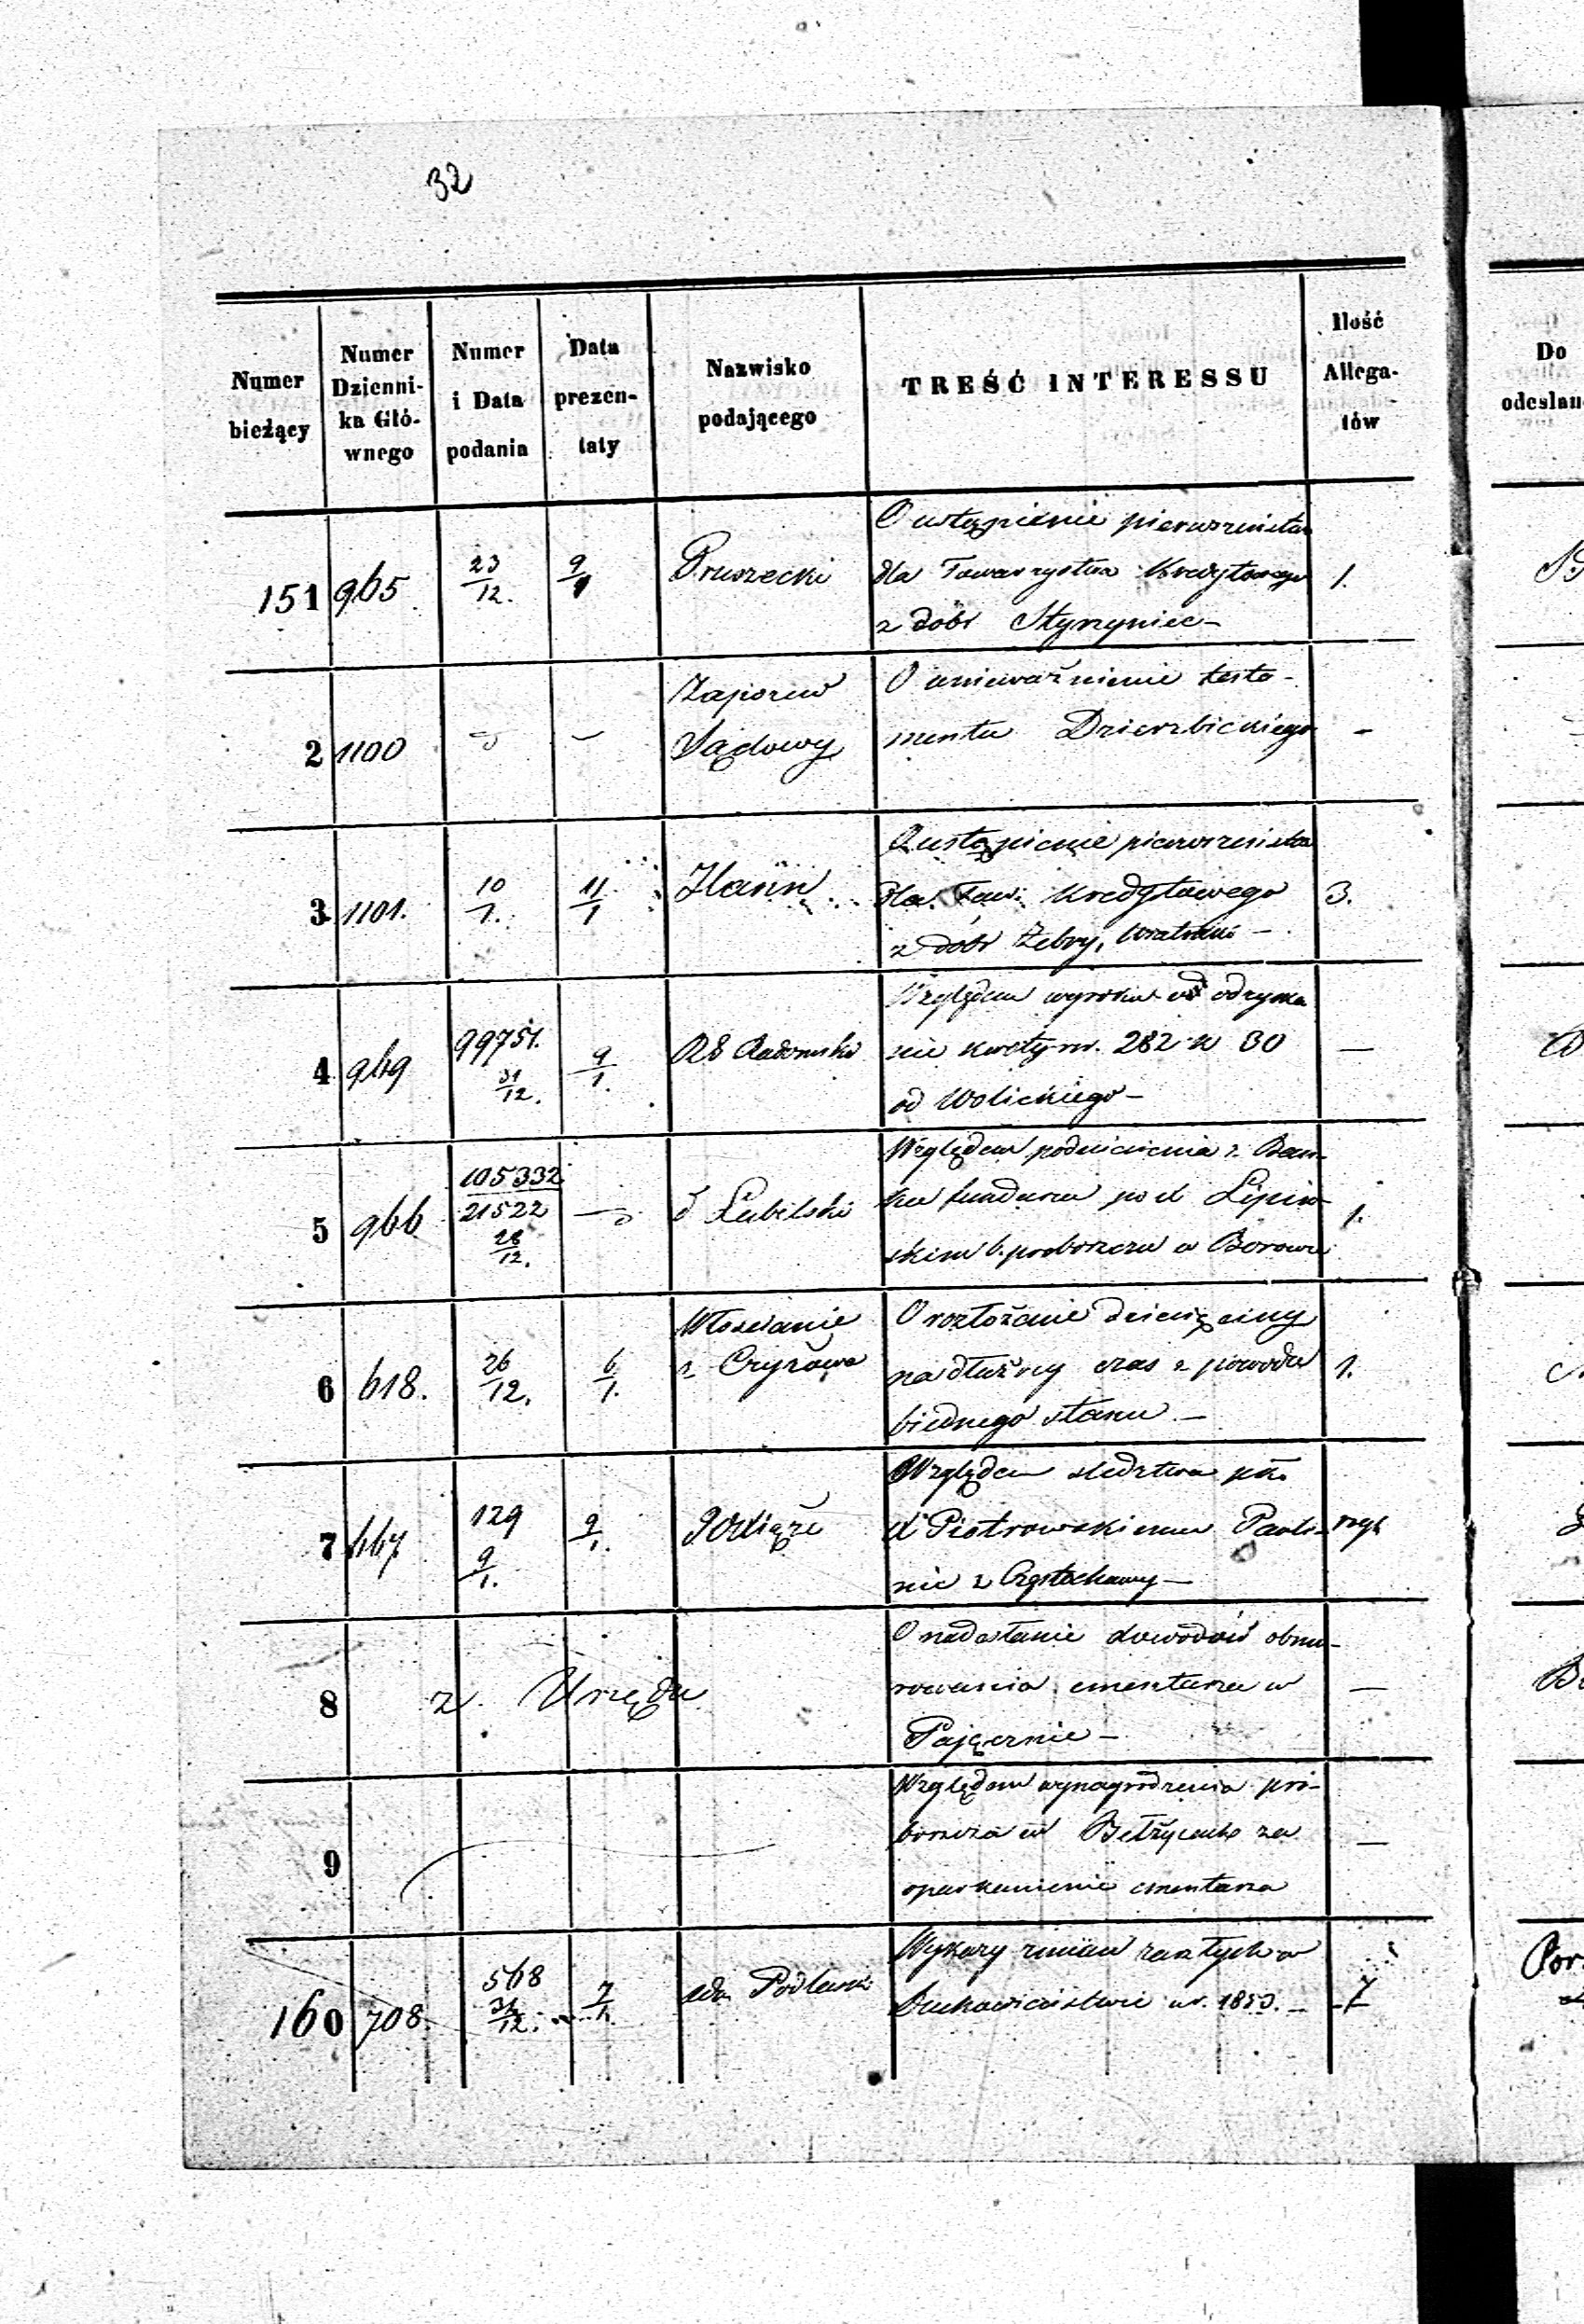 32
Numer bieżący
Numer Dzienni- ka Głó- wnego
Numer i Data podania
Data prezen- taty
Nazwisko podającego
TREŚĆ INTERESSU
Ilość Allega- tów
Do odesłan
151 965 23/12. 9/1 Pruszecki
O ustąpienie pierwszeństwa
dla Towarzystwa Kredytowego 1.
z dóbr
2 1100 – – Zapozew Sądowy
O unieważnienie testa-
mentu Dzierzbickiego –
3 1101. 10/1. 11/1 Hann
O ustąpienie pierwszeństwa
dla Tow: Kredytowego 3.
z dóbr Żebry,
4 969 99751. 31/12. 9/1. Radomski
Względem wyroku odzyska
nie kwoty rs. 282 k 30 —
od Wolickiego –
5 966 105332 21522 28/12. – Lubelski
Względem podniesienia z Ban-
ku funduszu po Lipiń- 1.
skim b. proboszczu w
6 618. 26/12. 6/1. Włościanie z
O rozłożenie dziesięciny
na dłuższy czas z powodu 1.
biednego stanu –
7 667 129 9/1. 9/1.
Względem śledztwa
Piotrowskiemu Pauli-
nie z Częstochowy –
8 z Urzędu
O nadesłanie dowodów obmu-
rowania cmentarza w —
Pajęcznie –
9
Względem wynagrodzenia pro-
boszcza w Bełżycach za —
oparkanienie cmentarza
160 708. 568 31/12. 7/1. Podlaski
Wykazy zmian zaszłych w
Duchowieństwie w r. 1853. – 7